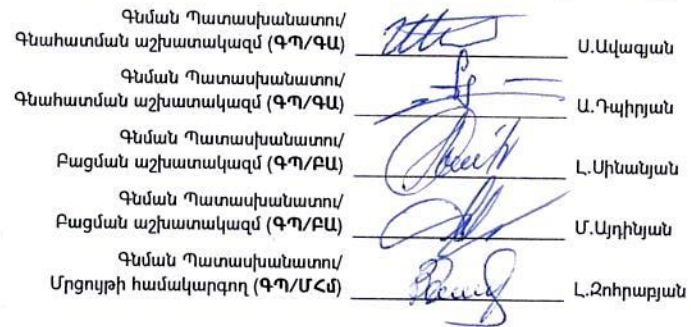 Գնման Պատասխանատու/
Գնահատման աշխատակազմ (ԳՊ/ԳԱ) Ս.Ավագյան
Գնման Պատասխանատու/
Գնահատման աշխատակազմ (ԳՊ/ԳԱ) Ա.Դպիրյան
Գնման Պատասխանատու/
Բացման աշխատակազմ (ԳՊ/ԲԱ) Լ.Սինանյան
Գնման Պատասխանատու/
Բացման աշխատակազմ (ԳՊ/ԲԱ) Մ.Այդինյան
Գնման Պատասխանատու/
Մրցույթի համակարգող (ԳՊ/ՄՀմ) Լ.Զոհրաբյան